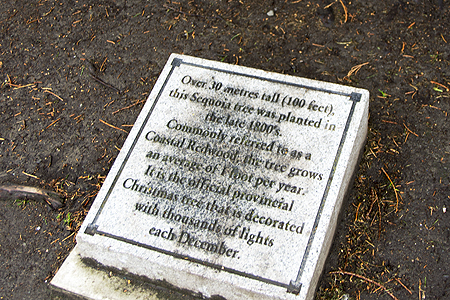 Over 30 metres tall (100 feet),
this Sequoia tree was planted in
the late 1800's.
Commonly referred to as a
Coastal Redwood, the tree grows
an average of 1 foot per year.
It is the official provincial
Christmas tree that is decorated
with thousands of lights
each December.